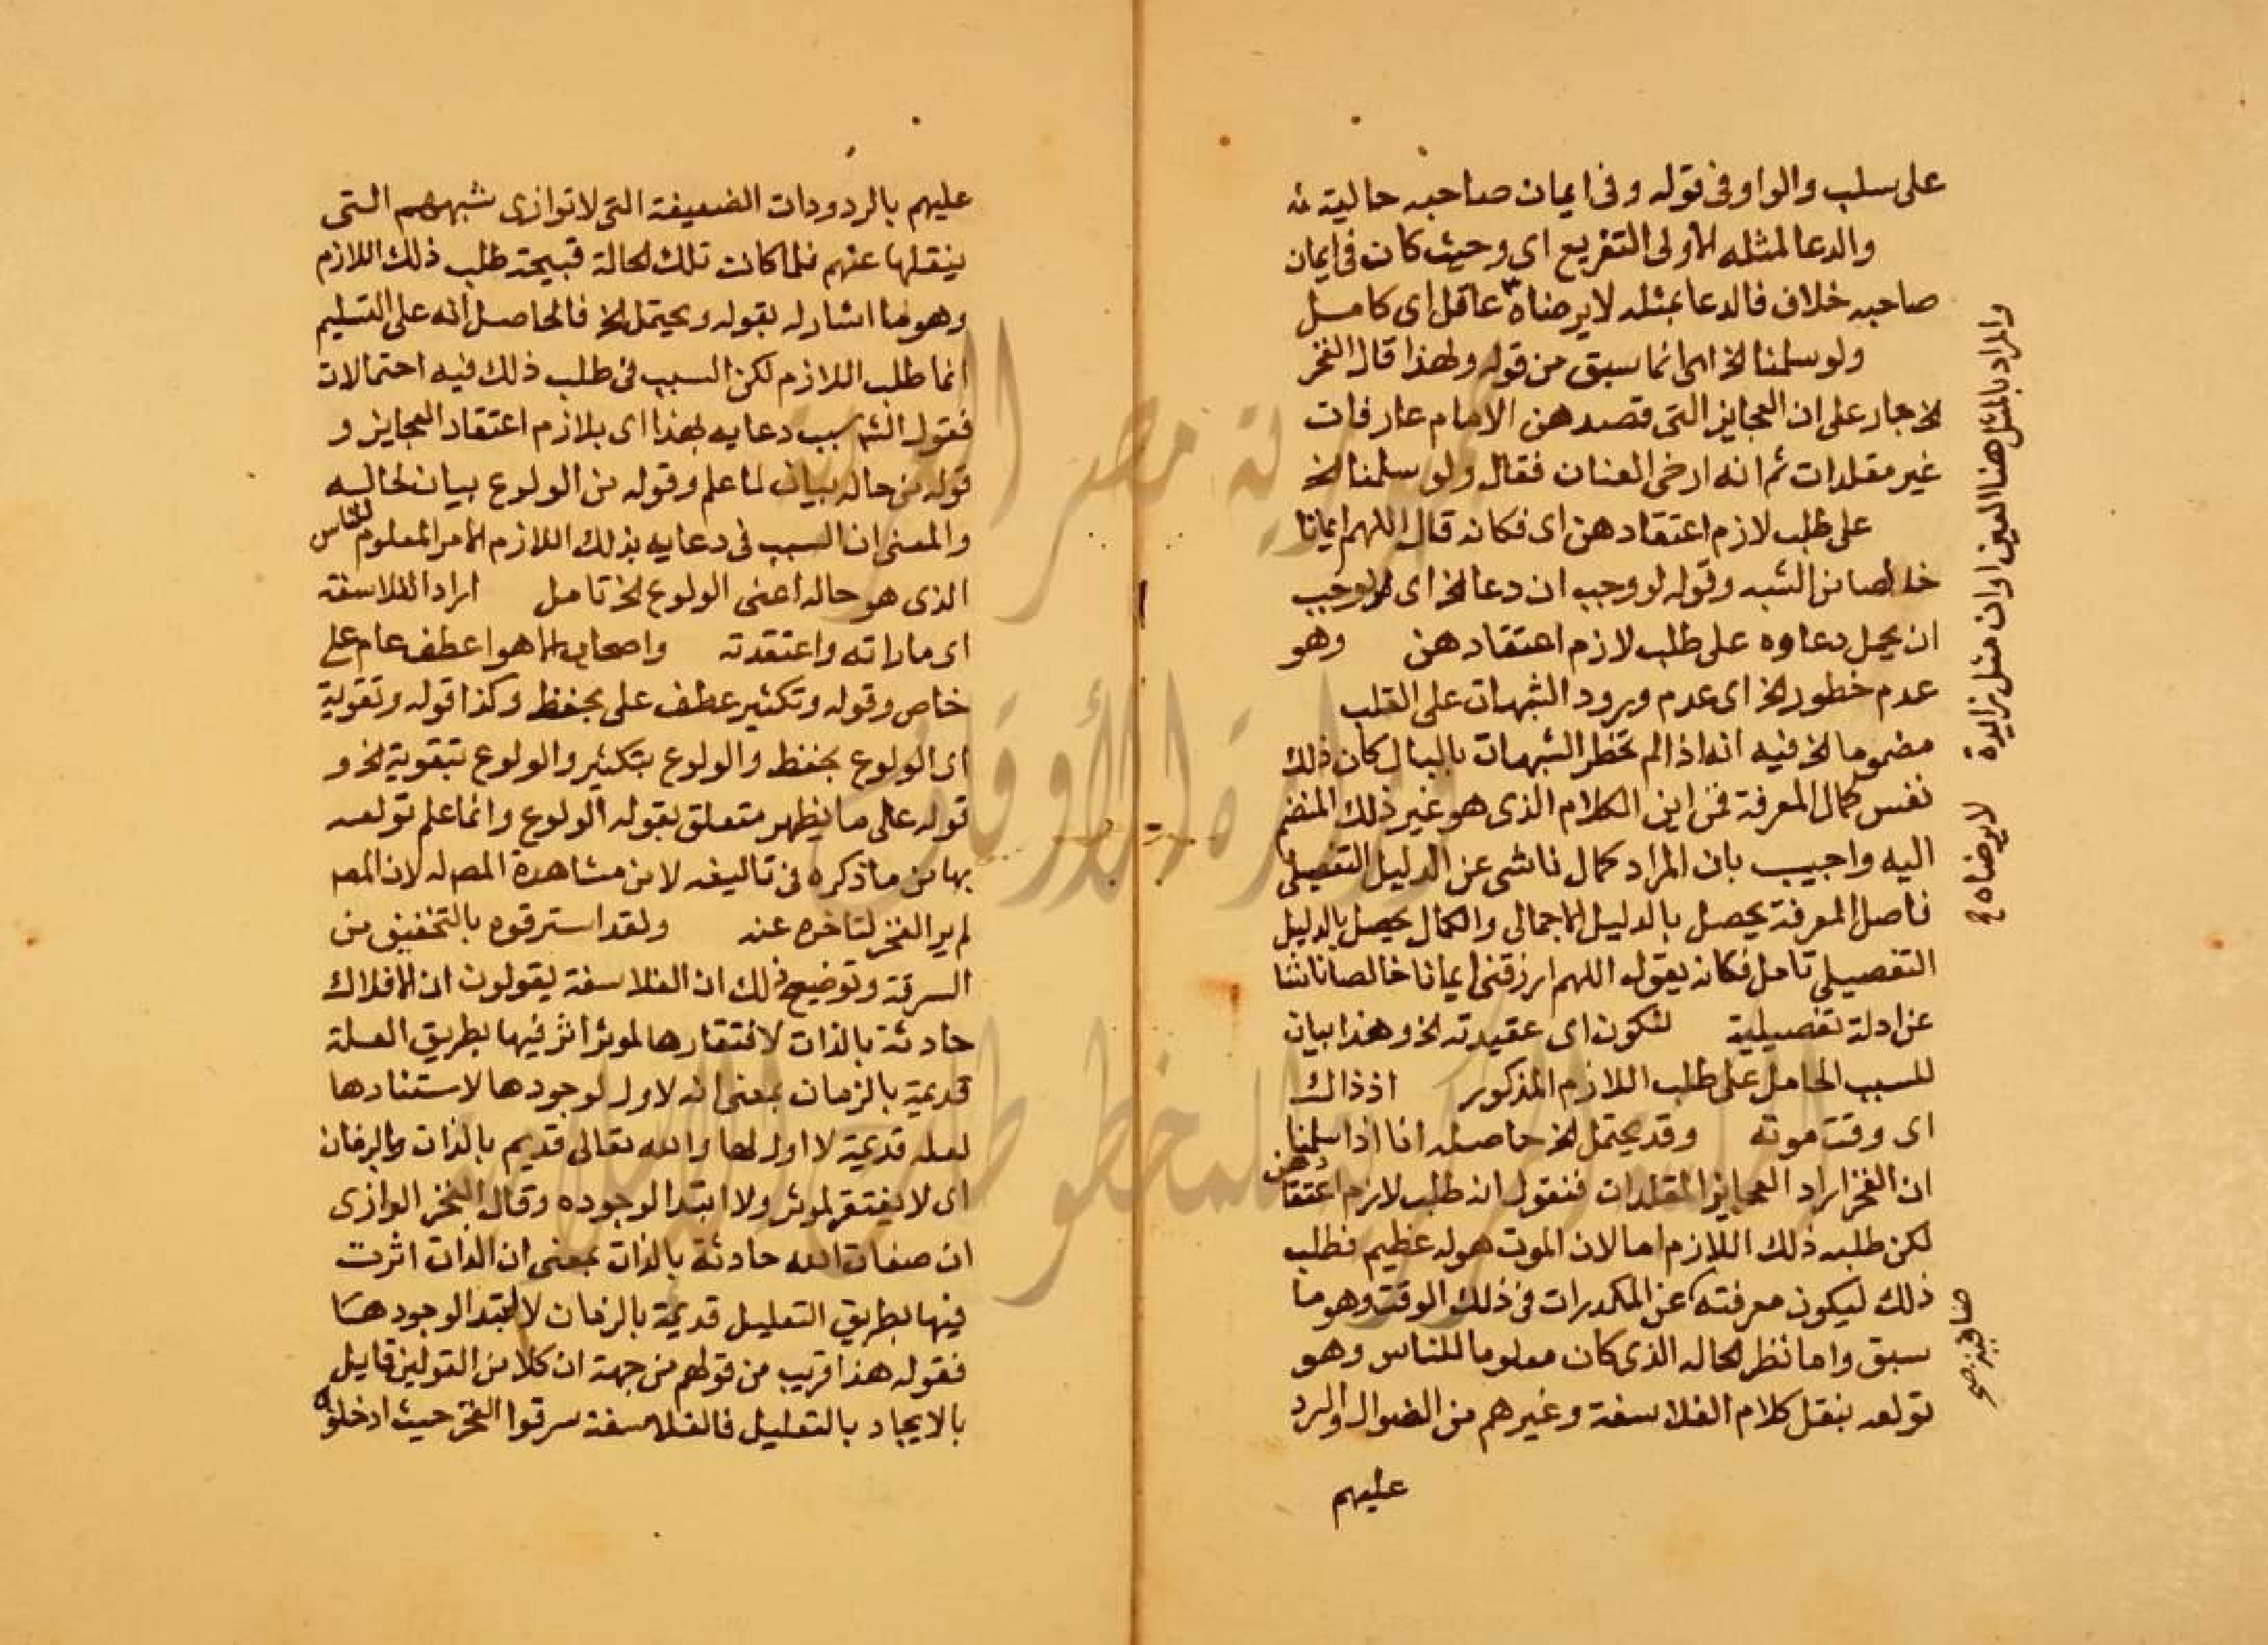 على سلب والواو في قوله وفي ايمان صاحبه حالية
والدعا لمثله الاولى التفريع اى وحيث كان في ايمان
صاحبه خلاف فالدعا بمثله لا يرضاه عاقل اى كامل
ولو سلمنا الخ اى انما سبق من قوله ولهذا قال الفخر
الخ جار على ان العجايز التى قصدهن الامام عارفات
غير مقلدات ثم انه ارخى العنان فقال ولو سلمنا الخ
على طلب لازم اعتقادهن اى فكانه قال اللهم ايمانا
خالصا من الشبه وقوله لو وجب ان دعا الخ اى لوجب
ان يحمل دعاوه على طلب لازم اعتقادهن وهو
عدم خطور الخ اى عدم ورود الشبهات على القلب
مضموما الخ فيه انه اذا لم تخطر الشبهات بالبال كان ذلك
نفس كمال المعرفة فمن اين الكلام الذى هو غير ذلك المنضم
اليه واجيب بان المراد كمال ناشى عن الدليل التفصيلى
فاصل المعرفة يحصل بالدليل الاجمالى والكمال يحصل بالدليل
التفصيلى تامل فكانه يقول اللهم ارزقنى ايمانا خالصا ناشا
عن ادلة تفصيلية لتكون اى عقيدته الخ وهذا بيان
للسبب الحامل على طلب اللازم المذكور اذ ذاك
اى وقت موته وقد يحتمل الخ حاصله انا اذا سلمنا
ان الفخر اراد العجايز المقلدات فنقول انه طلب لازم اعتقادهن
لكن طلبه ذلك اللازم اما لان الموت هوله عظيم فطلب
ذلك ليكون معرفته عن المكدرات فى ذلك الوقت وهو ما
سبق واما نظر لحاله الذى كان معلوما للناس وهو
تولعه بنقل كلام الفلاسفة وغيرهم من الضوال والرد
عليهم
والمراد بالمثل هنا العين او ان مثل زايدة
لا يرضاه
صافية صح
عليهم بالردودات الضعيفة التى لا توازى شبههم التى
ينقلها عنهم فلما كانت تلك الحالة قبيحة طلب ذلك اللازم
وهو ما اشار له بقوله ويحتمل الخ فالحاصل انه على التسليم
انما طلب اللازم لكن السبب فى طلب ذلك فيه احتمالات
فقول الش سبب دعايه بهذا اى بلازم اعتقاد العجايز و
قوله من حاله بيان لما علم وقوله من الولوع بيان لحاله
والمعنى ان السبب فى دعايه بذلك اللازم الامر المعلوم للناس
الذى هو حاله اعنى الولوع الخ تامل اراد الفلاسفة
اى ما راته واعتقدته واصحاب الاهوا عطف عام على
خاص وقوله وتكثير عطف على بحفظ وكذا قوله وتقوية
اى الولوع بحفظ والولوع بتكثير والولوع بتقوية الخ و
قوله على ما يظهر متعلق بقوله الولوع وانما علم تولعه
بها من ما ذكره فى تاليفه لا من مشاهدة المص له لان المص
لم ير الفخر لتاخره عنه ولقد استرقوه بالتخفيف من
السرقة وتوضيح ذلك ان الفلاسفة يقولون ان الافلاك
حادثة بالذات لافتقارها لموثر اثر فيها بطريق العلة
قديمة بالزمان بمعنى انه لا اول لوجودها لاستنادها
لعلة قديمة لا اول لها والله تعالى قديم بالذات وبالزمان
اى لا يفتقر لموثر ولا ابتدا لوجوده وقال الفخر الرازى
ان صفات الله حادثة بالذات بمعنى ان الذات اثرت
فيها بطريق التعليل قديمة بالزمان لا ابتدا لوجودها
فقوله هذا قريب من قولهم من جهة ان كلا من القولين قايل
بالايجاد بالتعليل فالفلاسفة سرقوا الفخر حيث ادخلوه